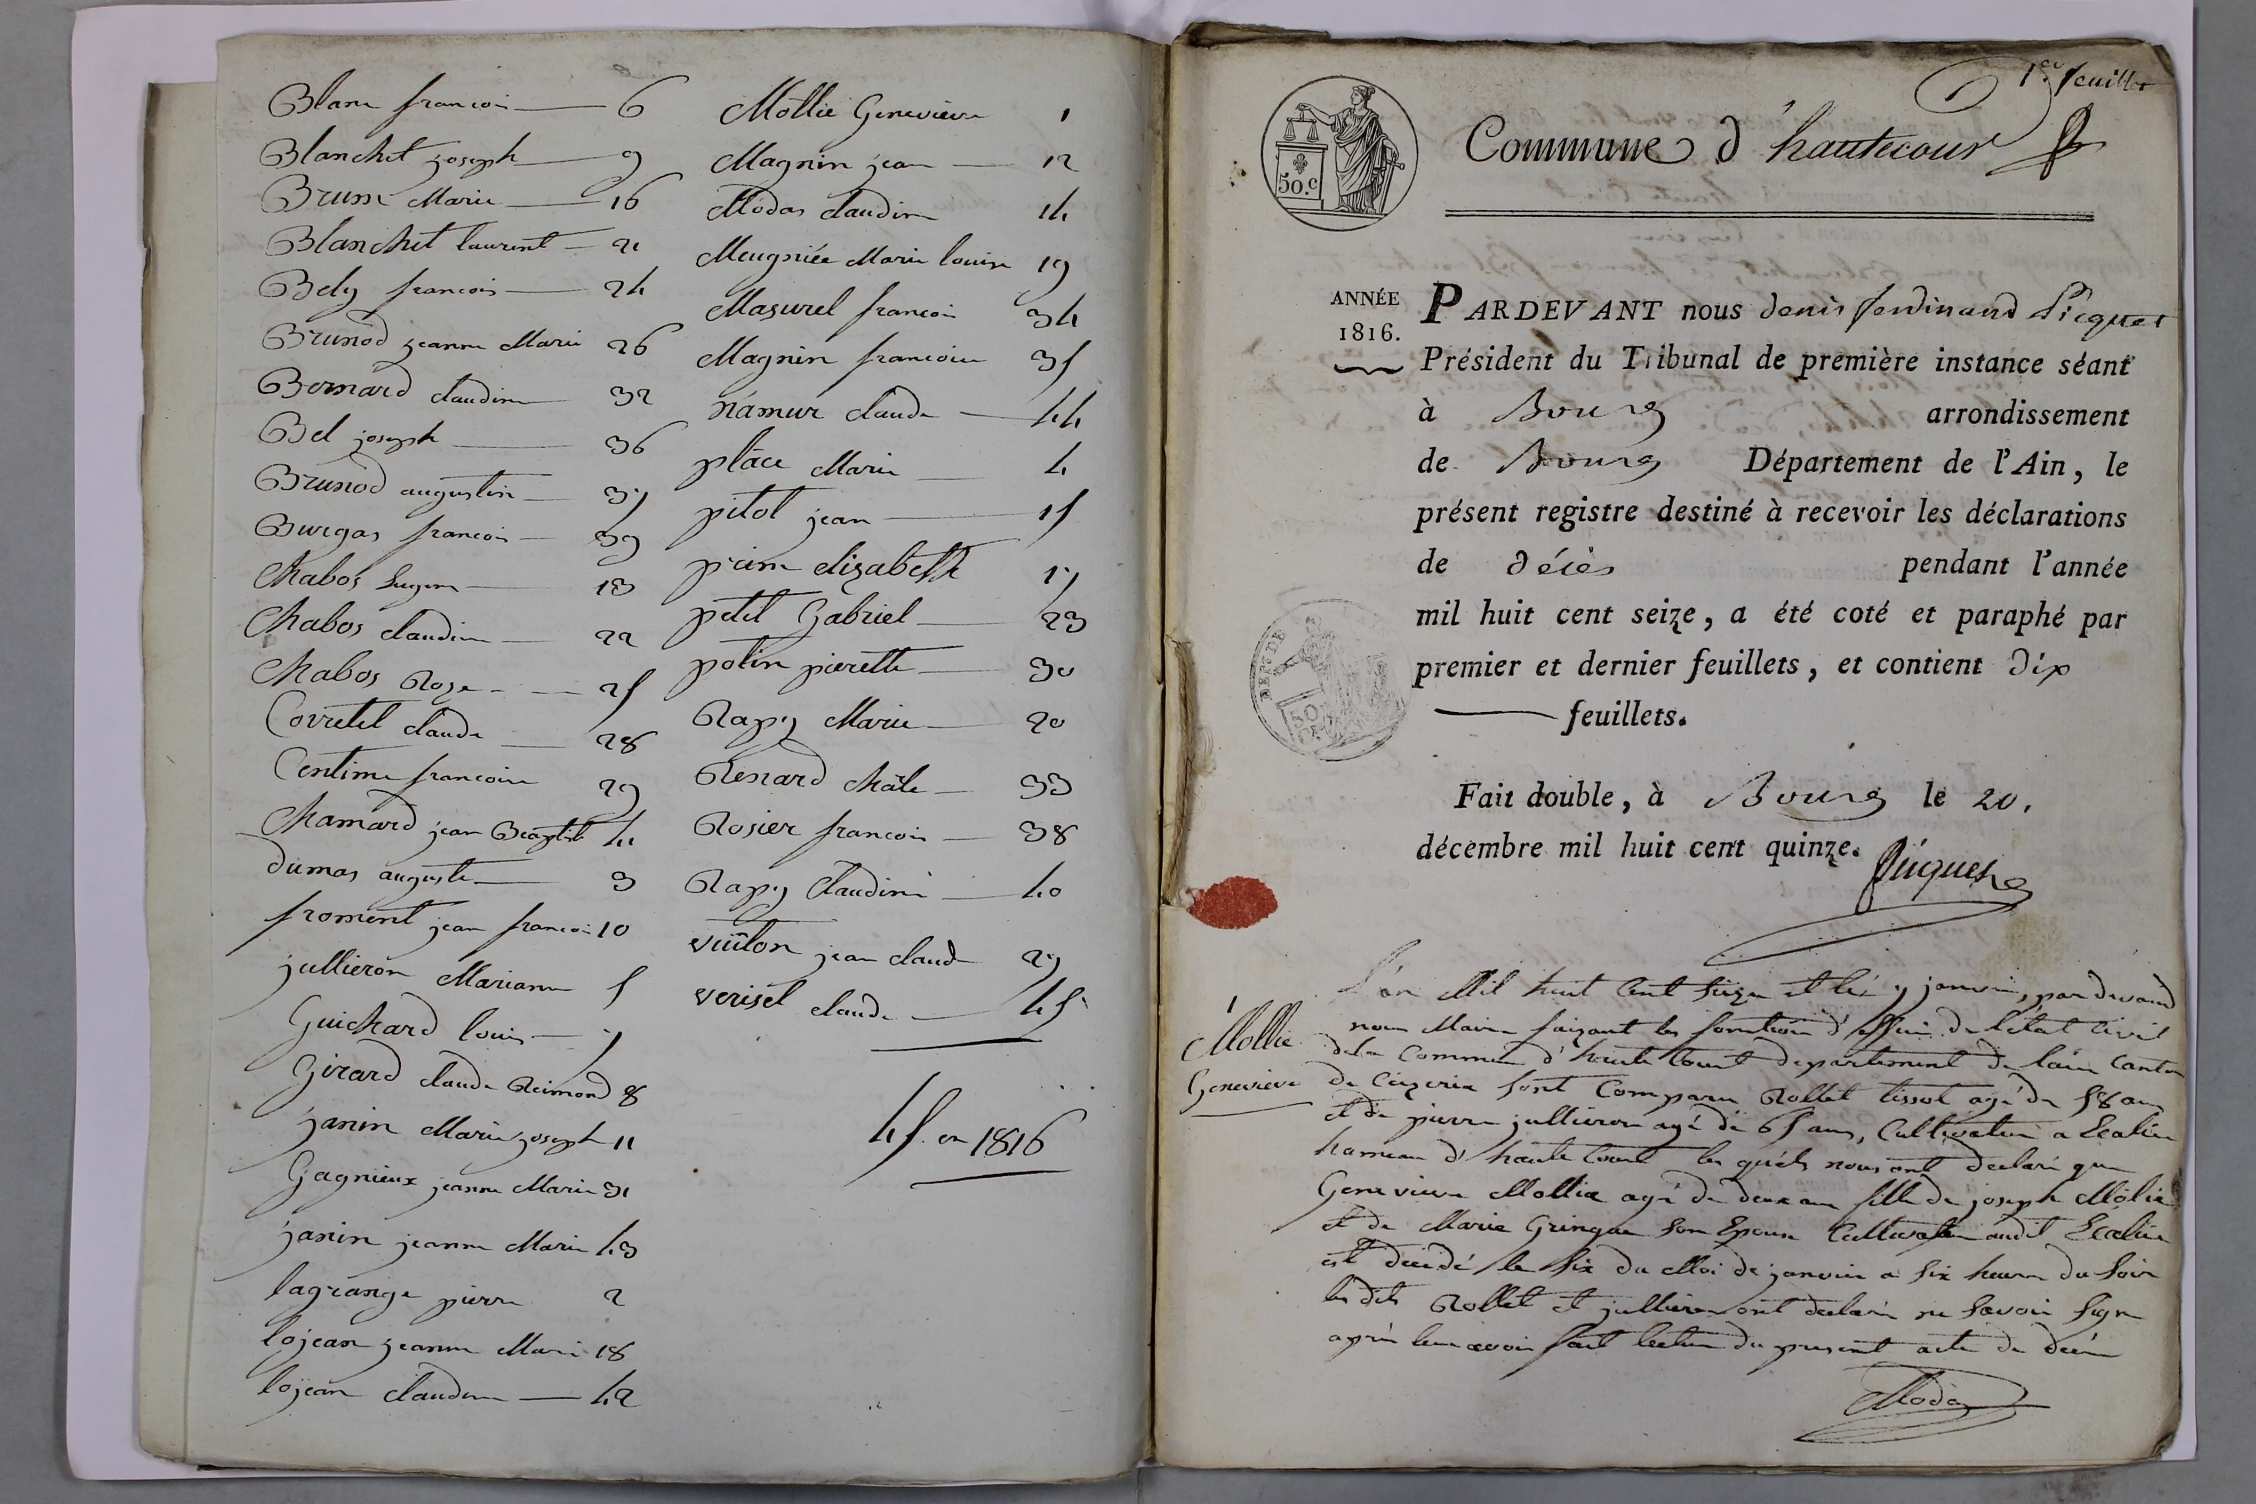 Blanc francois 6
Blanchet joseph 9
Brun Marie 16
Blanchet laurent 21
Bely francois 24
Brunod jeanne Marie 26
Bernard claudine 32
Bel joseph 36
Brunod augustin 37
Burgas francois 39
Chabos 13
Chabos claudine 22
Chabos Roze 25
Covretel claude 28
Centime francoise 29
Chamard jean Baptiste 41
dumas auguste 3
froment jean francois 10
jullieron Marianne 5
Guichard louis 7
Girard claude Reimond 8
janin Marie joseph 11
Gagnieux jeanne Marie 31
janin jeanne Marie 43
lagrange pierre 2
lojean jeanne Marie 18
lojean claudine 42
Mollie Genevieve 1
Magnin jean 12
Modas claudine 14
Meugniée Marie louise 19
Masurel francois 34
Magnin francoise 35
namur claude 44
place Marie 4
pitol jean 15
prim elizabeth 17
petit Gabriel 23
polin pierette 30
Rapy Marie 20
Renard 33
Rosier francois 38
Rapy Claudine 40
vuiton jean claude 27
verisel claude 45
45 en 1816
1er feuillet
Commune d'hautecour
50.c
ANNÉE
1816.
PARDEVANT nous denis ferdinand Picquet
Président du Tribunal de première instance séant
à Bourg arrondissement
de Bourg Département de l'Ain, le
présent registre destiné à recevoir les déclarations
de décès pendant l'année
mil huit cent seize, a été coté et paraphé par
premier et dernier feuillets, et contient dix
feuillets.
Fait double, à Bourg le 20.
décembre mil huit cent quinze.
Picquet
1
Mollie
Genevieve
L'an Mil huit Cent Seize et le 7 janvier, par devant
nous Maire faizant les fonction d'officier de l'état Civil
dela Commune d'haute Court departement de l'ain Canton
de Ceizeria sont Comparu Rollet tissot agé de 58 ans
et de pierre jullieron agé de 65 ans, Cultivateur a
hameau d'haute Court les quels nous ont declaré que
Genevieve Mollie agé de deux ans fille de joseph Molie
et de Marie Gringue son Epouse Cultivateur audit
est decidé le six du Moi de janvier a six heures du soir
les dits Rollet et jullieron ont declaré ne savoir signe
après leur avoir fait lecture du present acte de décès
Modas